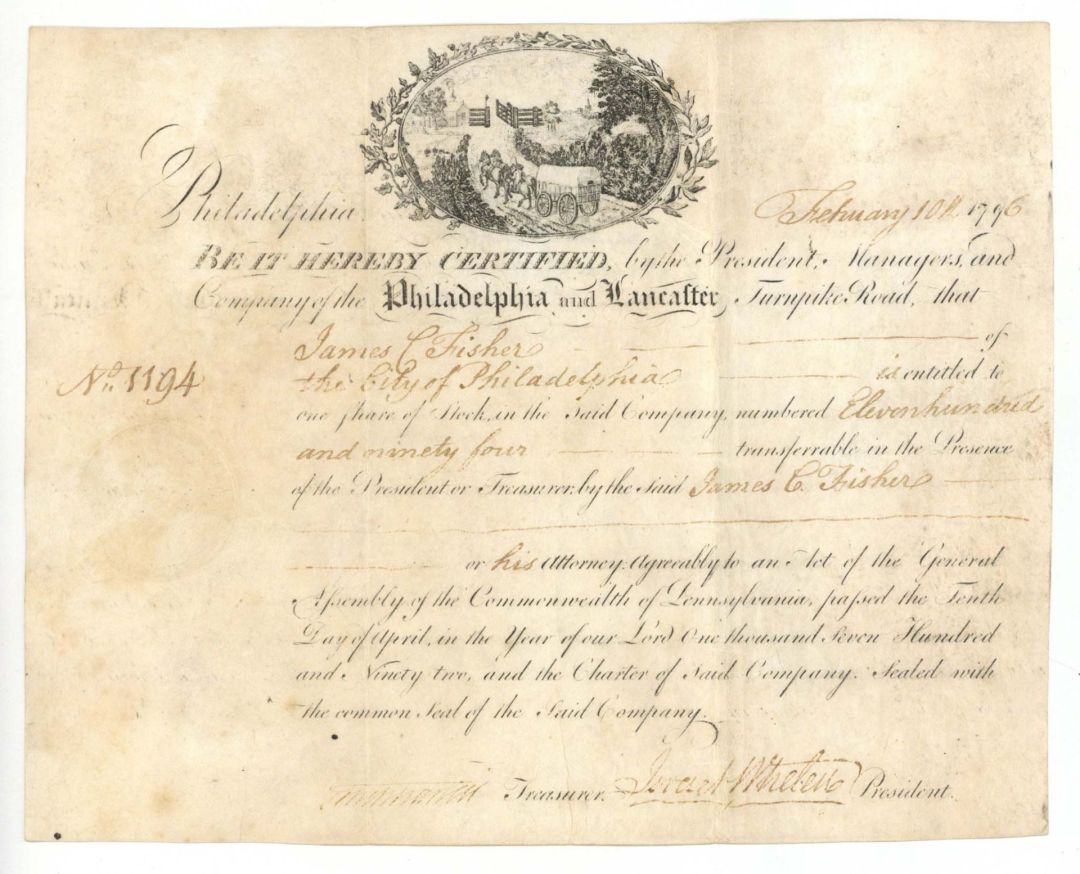 Philadelphia February 10th 1796
BE IT HEREBY CERTIFIED, by the President, Managers, and
Company of the Philadelphia and Lancaſter Turnpike Road, that
James C Fisher of
No. 1194
the City of Philadelphia is entitled to
one ſhare of Stock, in the Said Company, numbered Elevenhundred
and ninety four transferrable in the Presence
of the President or Treasurer, by the Said James C. Fisher
or his Attorney, Agreeably to an Act of the General
Aſsembly of the Commonwealth of Pennsylvania, paſsed the Tenth
Day of April, in the Year of our Lord One thousand Seven Hundred
and Ninety two, and the Charter of Said Company. Sealed with
the common Seal of the Said Company.
Treasurer. Israel Whelen President.